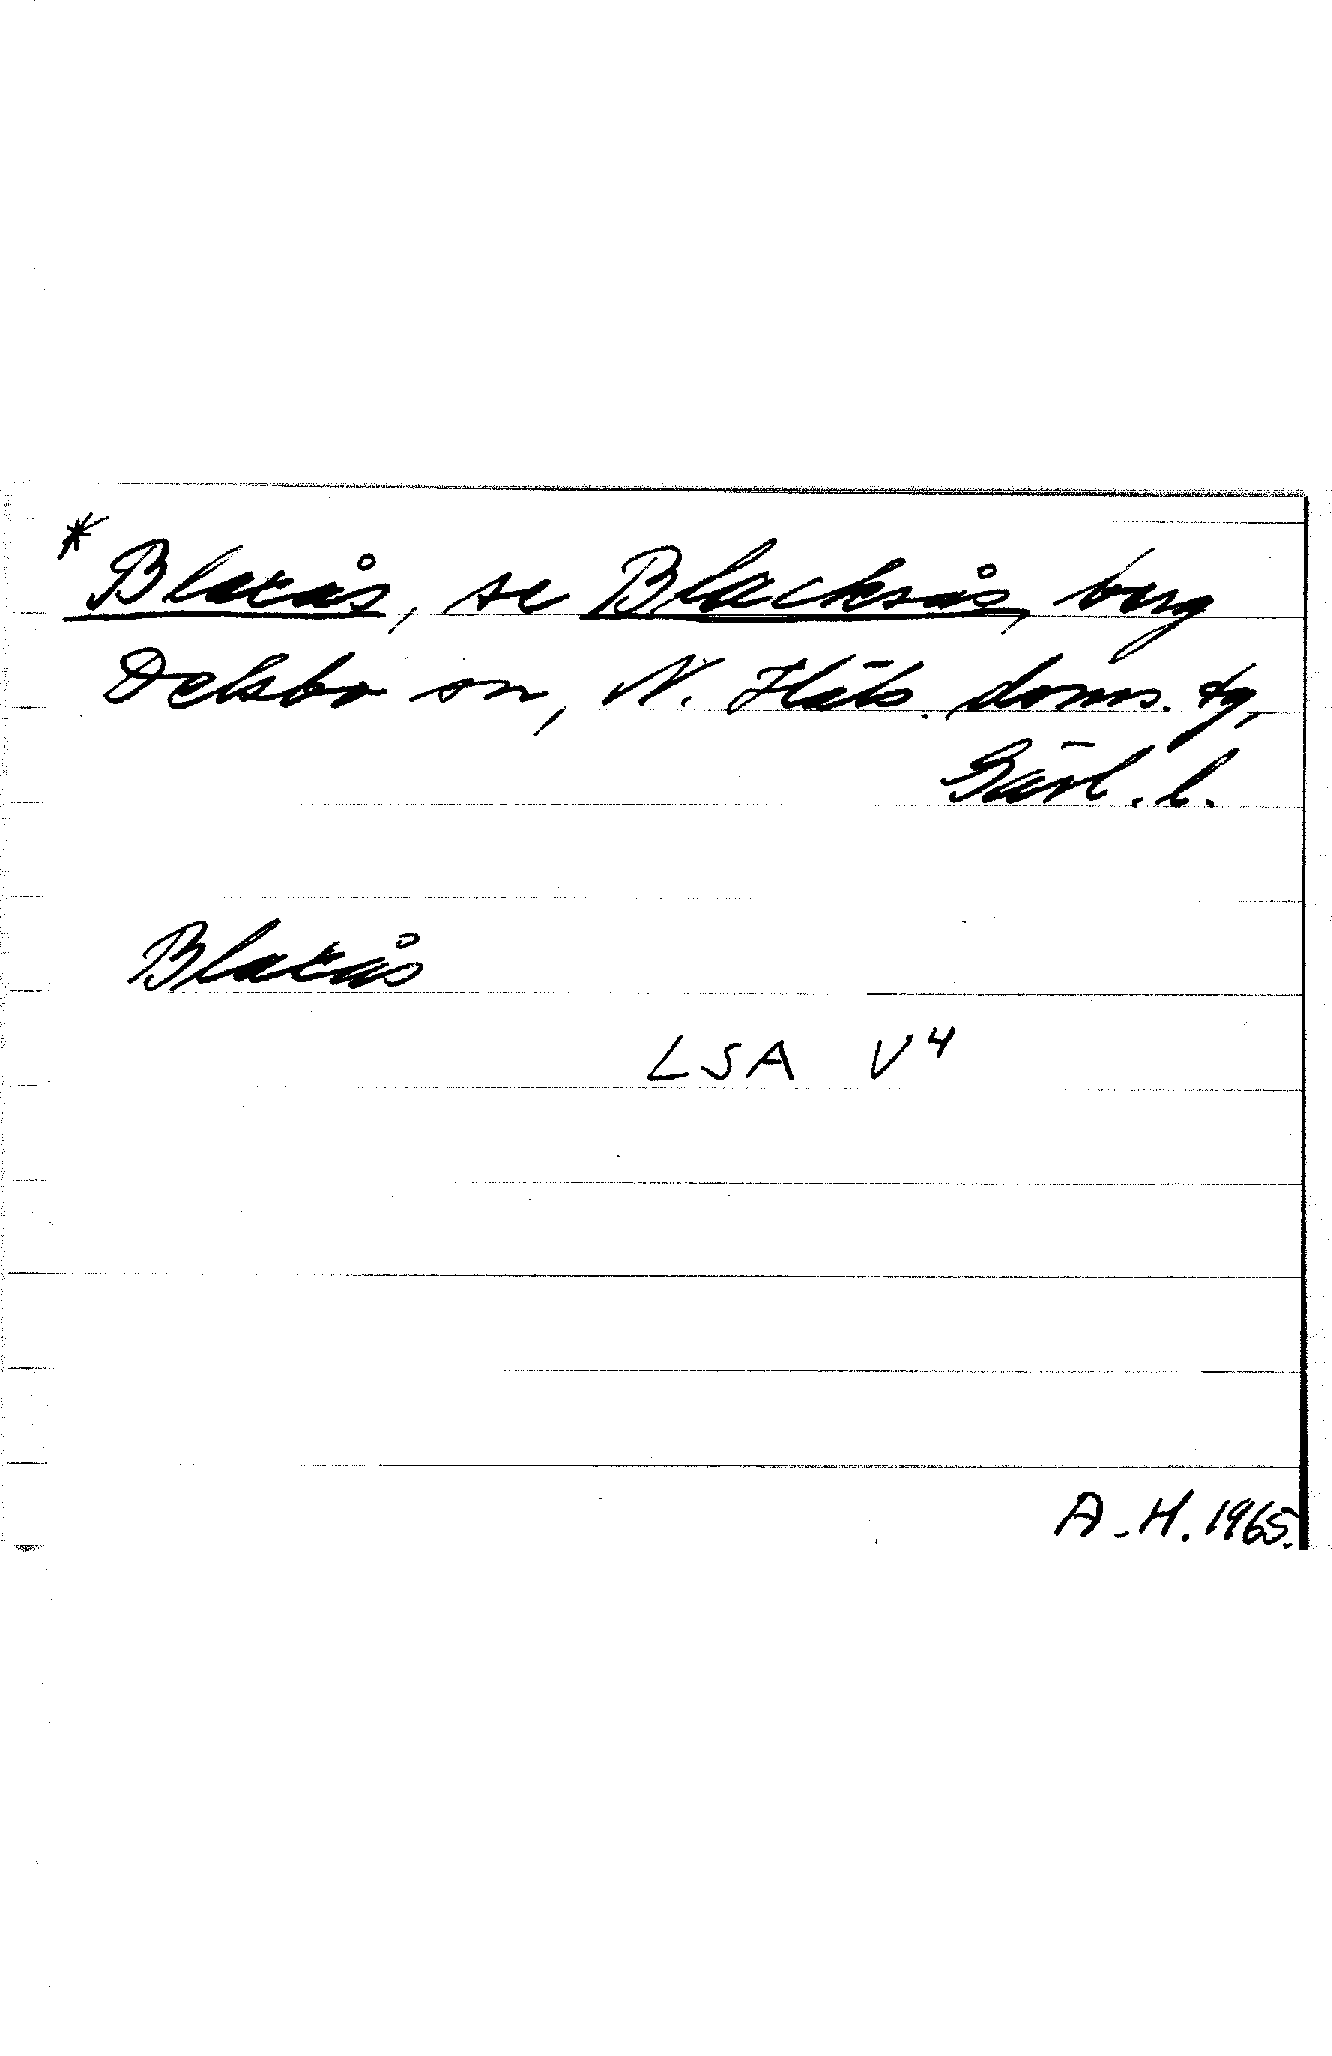 * Blaxås, se Blacksås, berg
Delsbo sn, N. Häls. doms. tg,
Gävl. l.
Blaxås
LSA V4
A-H. 1965.